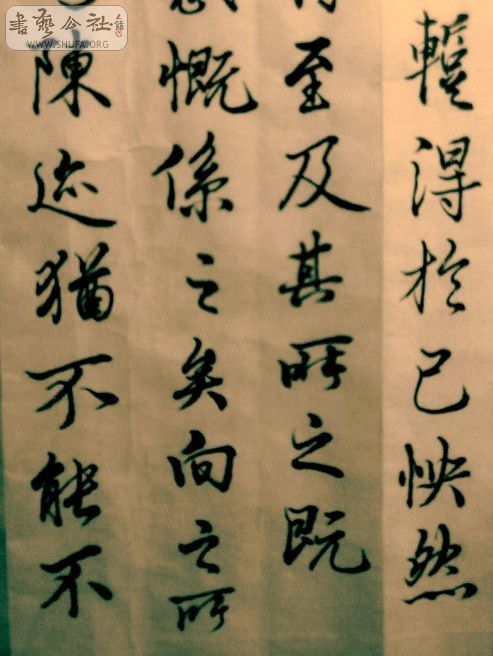 書藝公社
WWW.SHUFA.ORG
蹔得於己怏然
至及其所之既
慨係之矣向之所
陳迹猶不能不